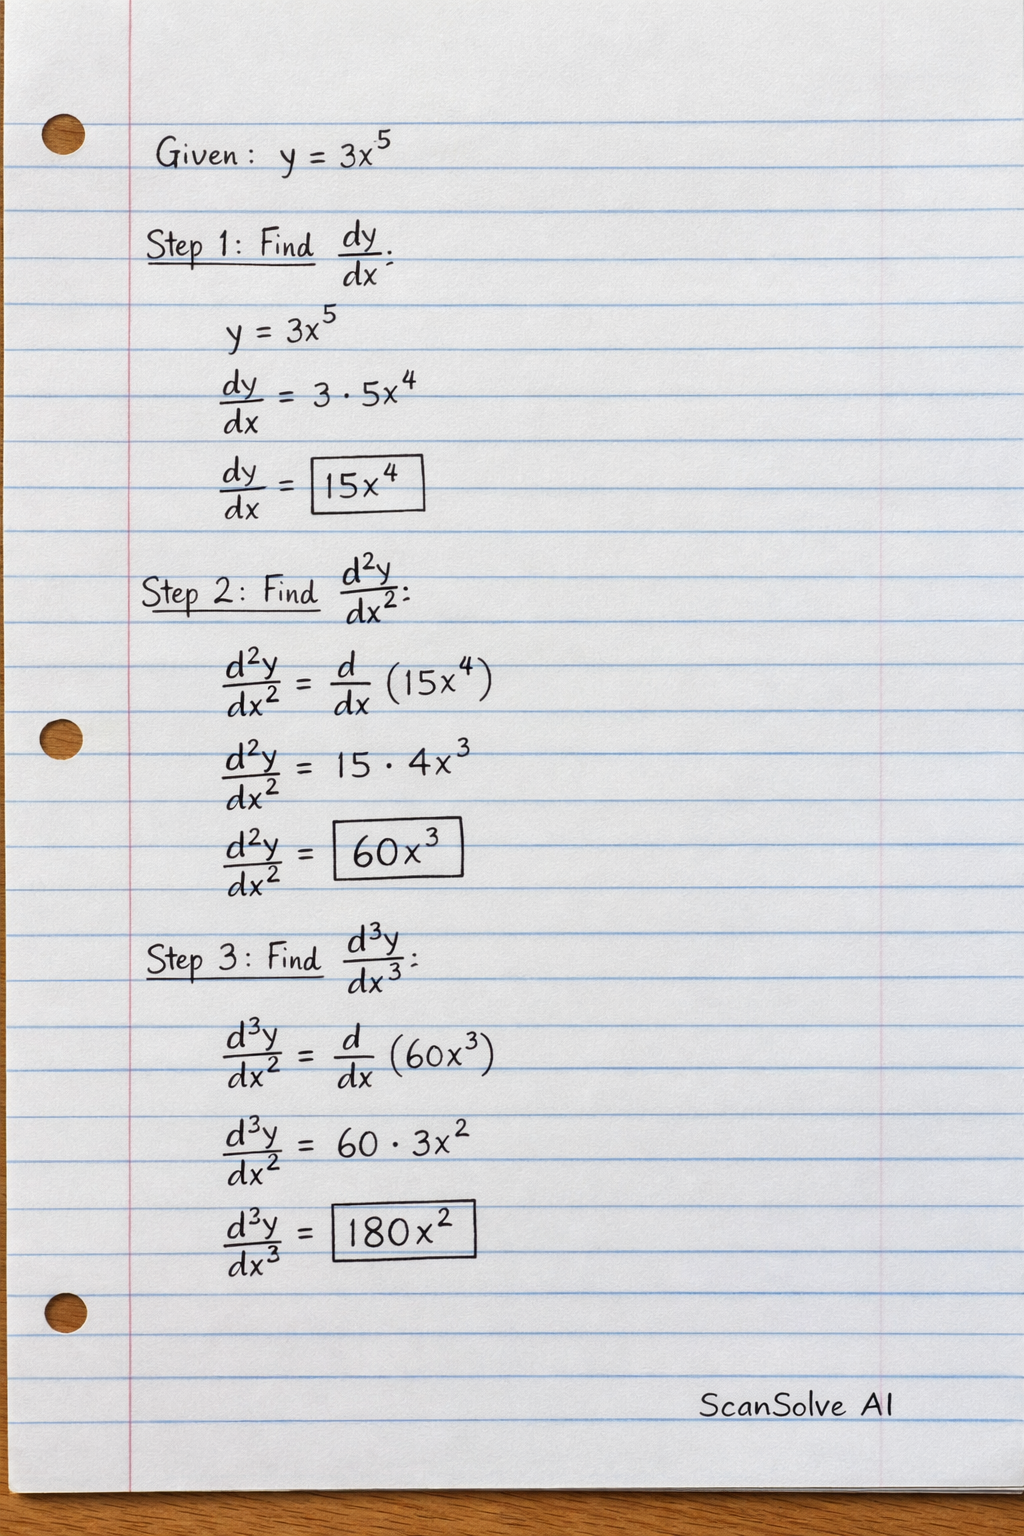 Given: y = 3x⁵
Step 1: Find dy/dx:
y = 3x⁵
dy/dx = 3 · 5x⁴
dy/dx = 15x⁴
Step 2: Find d²y/dx²:
d²y/dx² = d/dx (15x⁴)
d²y/dx² = 15 · 4x³
d²y/dx² = 60x³
Step 3: Find d³y/dx³:
d³y/dx² = d/dx (60x³)
d³y/dx² = 60 · 3x²
d³y/dx³ = 180x²
ScanSolve AI